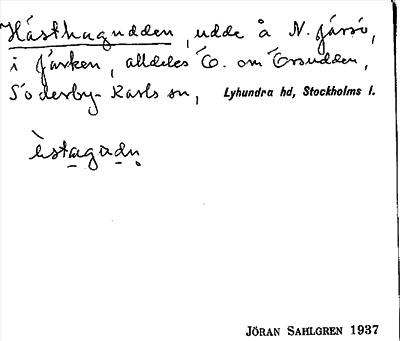 Hästhagudden, udde å N. Järsö,
i Järken, alldeles Ö. om Örsudden,
Söderby-Karls sn, Lyhundra hd, Stockholms l.
èstagudn
JÖRAN SAHLGREN 1937